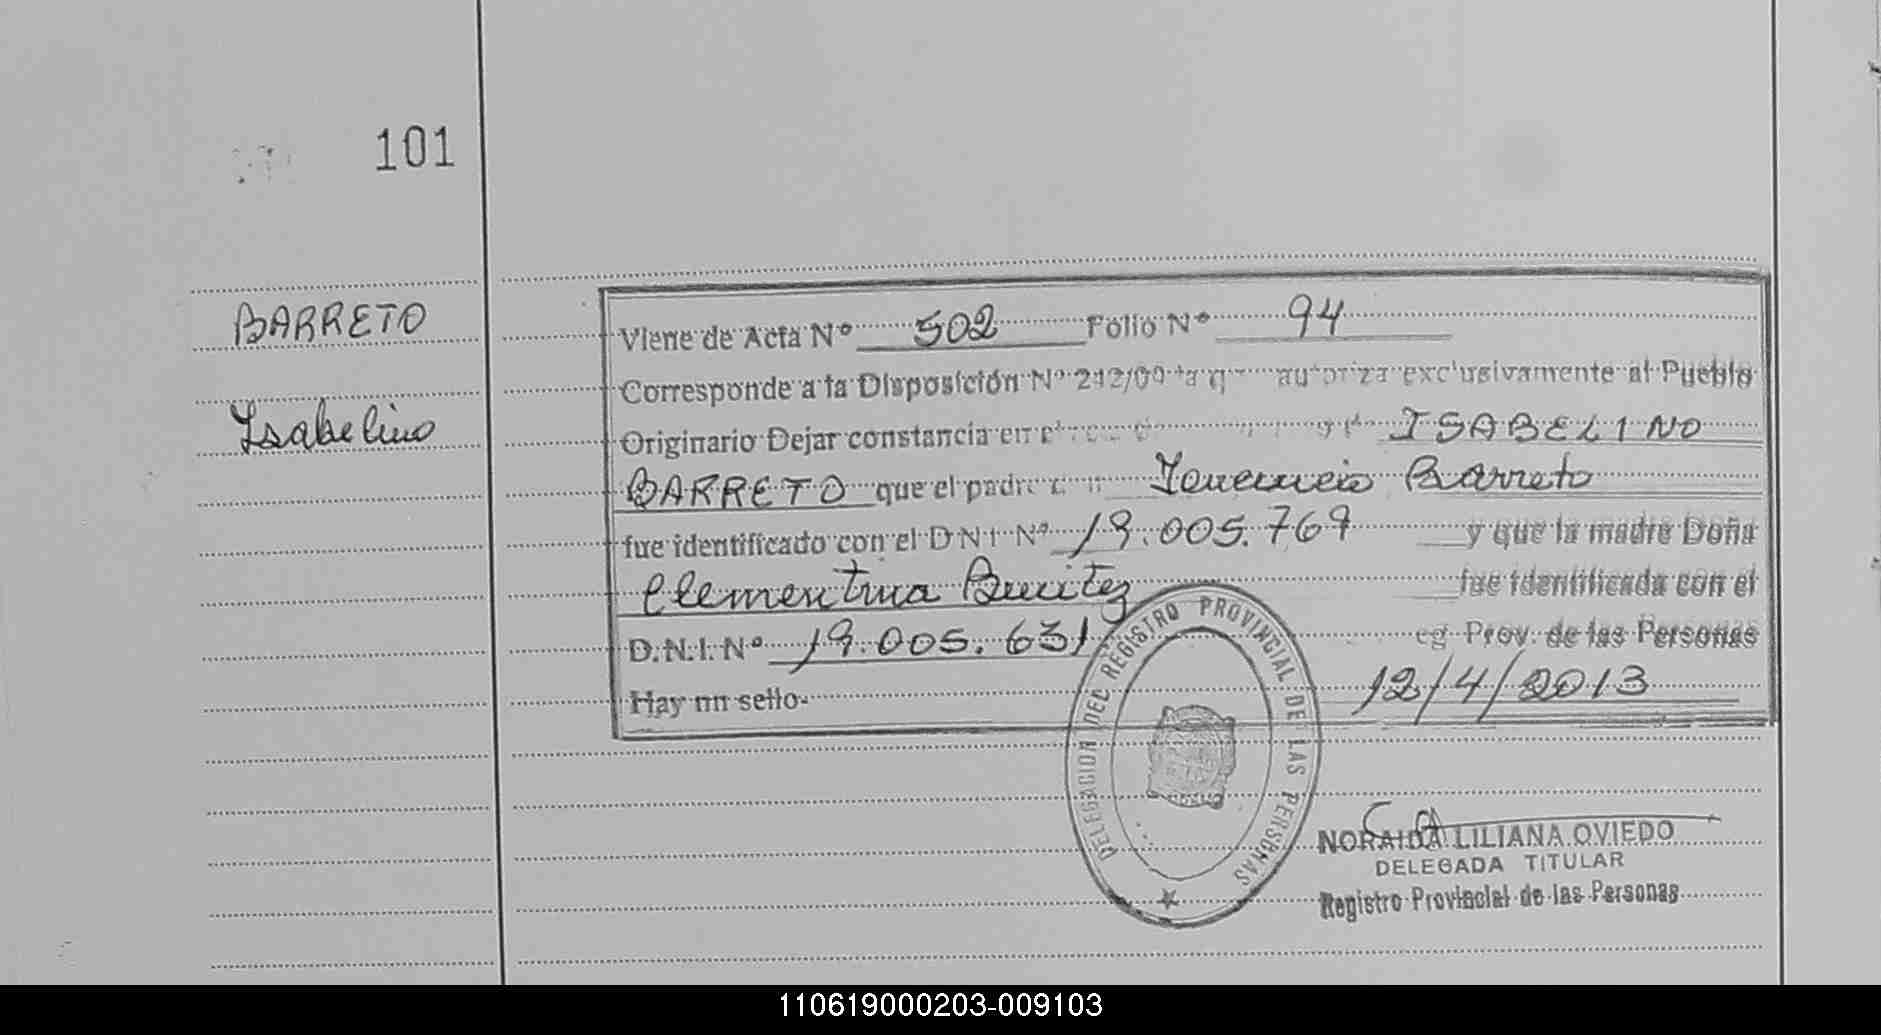 101
BARRETO
Isabelino
Viene de Acta Nº 502 Folio Nº 94
Corresponde a la Disposición Nº 242/00 la q autoriza exclusivamente al Pueblo
Originario Dejar constancia en el ISABELINO
BARRETO que el padre Barreto
fue identificado con el D N I Nº 19.005.769 y que la madre Doña
Clementina Benitez fue identificada con el
D.N.I. Nº 19.005.631 eg Prov. de las Personas
Hay un sello. 12/4/2013
DELEGACION DEL REGISTRO PROVINCIAL DE LAS PERSONAS
NORAIDA LILIANA OVIEDO
DELEGADA TITULAR
Registro Provincial de las Personas
110619000203-009103